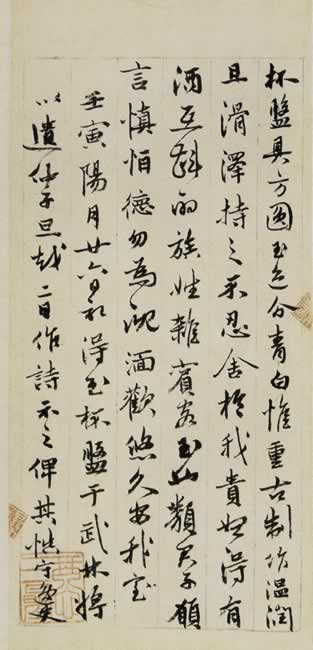 杯盤具方圓玉色分青白惟重古制作溫潤
且滑澤持之不忍舍於我貴得有
酒互斟酌族姓雜賓客玉山類君子願
言慎德勿為沉湎歡悠久安我宅
壬寅陽月廿六日得玉杯盤于武林將
以遺仲子旦越二日作詩示之俾其守